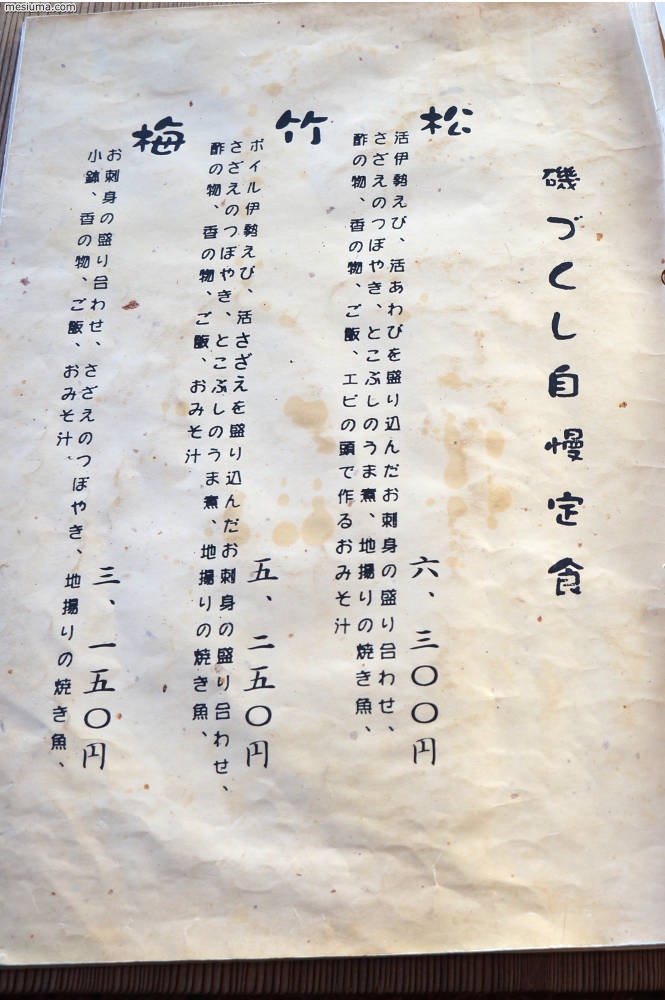 mesiuma.com
磯づくし自慢定食
松
六、三〇〇円
活伊勢えび、活あわびを盛り込んだお刺身の盛り合わせ、
さざえのつぼやき、とこぶしのうま煮、地揚りの焼き魚、
酢の物、香の物、ご飯、エビの頭で作るおみそ汁
竹
五、二五〇円
ボイル伊勢えび、活さざえを盛り込んだお刺身の盛り合わせ、
さざえのつぼやき、とこぶしのうま煮、地揚りの焼き魚、
酢の物、香の物、ご飯、おみそ汁
梅
三、一五〇円
お刺身の盛り合わせ、さざえのつぼやき、地揚りの焼き魚、
小鉢、香の物、ご飯、おみそ汁、